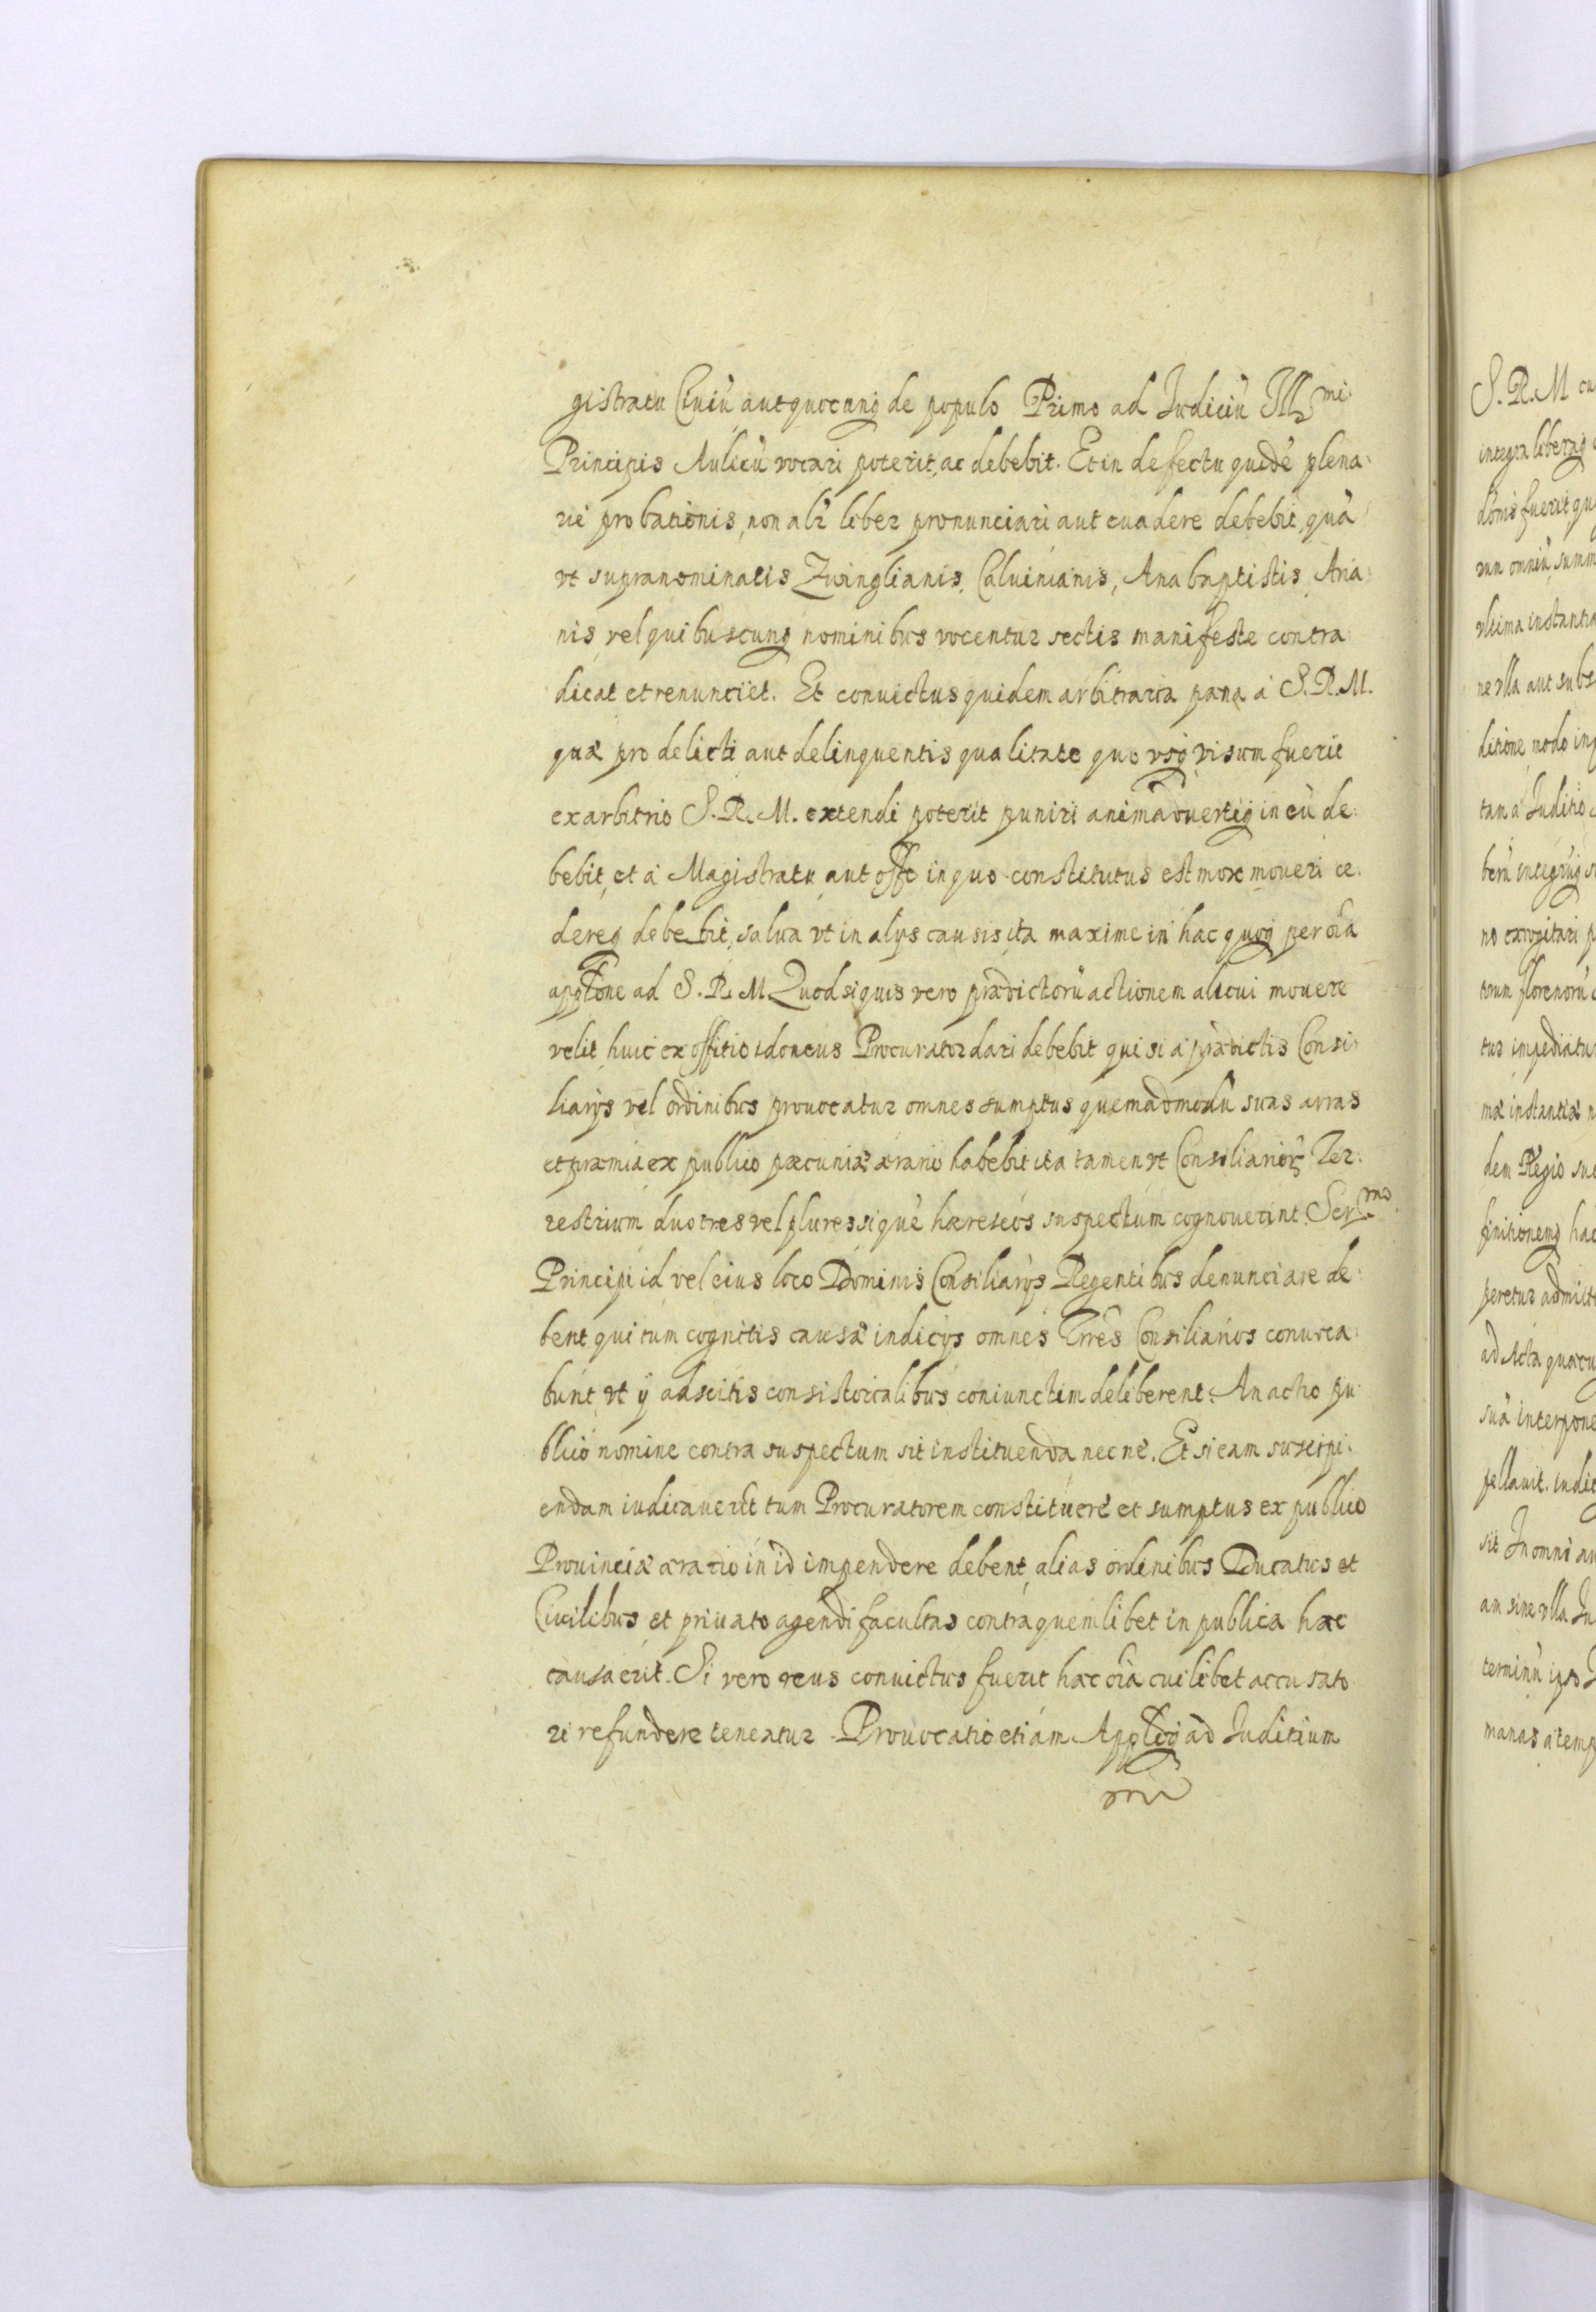 gistratu Ciuiũ aut quocunq de populo Primo ad Judiciũ Ill^mi.
Principis Aulicũ vocari poterit, ac debebit. Et in defectu quidẽ plena:
rie probationis, non alr̃ liber pronunciari aut euadere debebit, quã
vt supranominatis Zwinglianis, Caluinianis, Anabaptistis, Aria:
nis, vel quibuscunq nominibus vocentur sectis manifeste contra:
dicat et renunciet. Et conuictus quidem arbitraria pæna à S.R.M.
quæ pro delicti aut delinquentis qualitate quo vsq visum fuerit
ex arbitrio S.R.M. extendi poterit puniri animaduertiq in eũ de:
bebit, et à Magistratu aut offo in quo constitutus est mox moueri ce:
dereq debebit, salua vt in alijs causis ita maxime in hac quoq per oĩa
applõne ad S.R.M. Quod si quis vero prædictorũ actionem alicui mouere
velit, huic ex offitio idoneus Procurator dari debebit qui si à prædictis Consi:
liarijs vel ordinibus prouocatur omnes sumptus quemadmodũ suas arras
et præmia ex publico pæcuniæ ærario habebit ita tamen vt Consiliarioꝝ Ter:
restrium duo tres vel plures si quẽ hæreseos suspectum cognouerint Ser^mo.
Principi id vel eius loco Dominis Consiliarijs Regentibus denunciare de:
bent qui tum cognitis causæ indicijs omnes Trres Consiliarios conuoca:
bunt, vt ij adscitis consistorialibus coniunctim deliberent: An actio pu:
blico nomine contra suspectum sit instituenda nec ne. Et si eam suscipi:
endam iudicauerĩt tum Procuratorem constituere et sumptus ex publico
Prouinciæ ærario in id impendere debent, alias ordinibus Ducatus et
Ciuilibus et priuato agendi facultas contra quemlibet in publica hac
causa erit. Si vero reus conuictus fuerit hæc oĩa cuilibet accusato
ri refundere teneatur. Prouocatio etiam Applõq ad Juditium